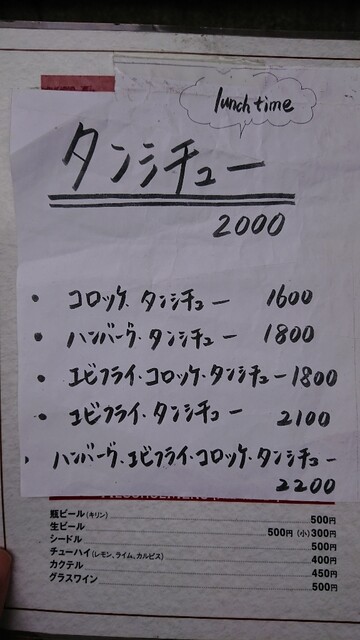 lunch time
タンシチュー
2000
・コロッケ・タンシチュー 1600
・ハンバーグ・タンシチュー 1800
・エビフライ・コロッケ・タンシチュー 1800
・エビフライ・タンシチュー 2100
・ハンバーグ・エビフライ・コロッケ・タンシチュー
2200
瓶ビール(キリン) 500円
生ビール 500円 (小)300円
シードル 500円
チューハイ(レモン、ライム、カルピス) 400円
カクテル 450円
グラスワイン 500円